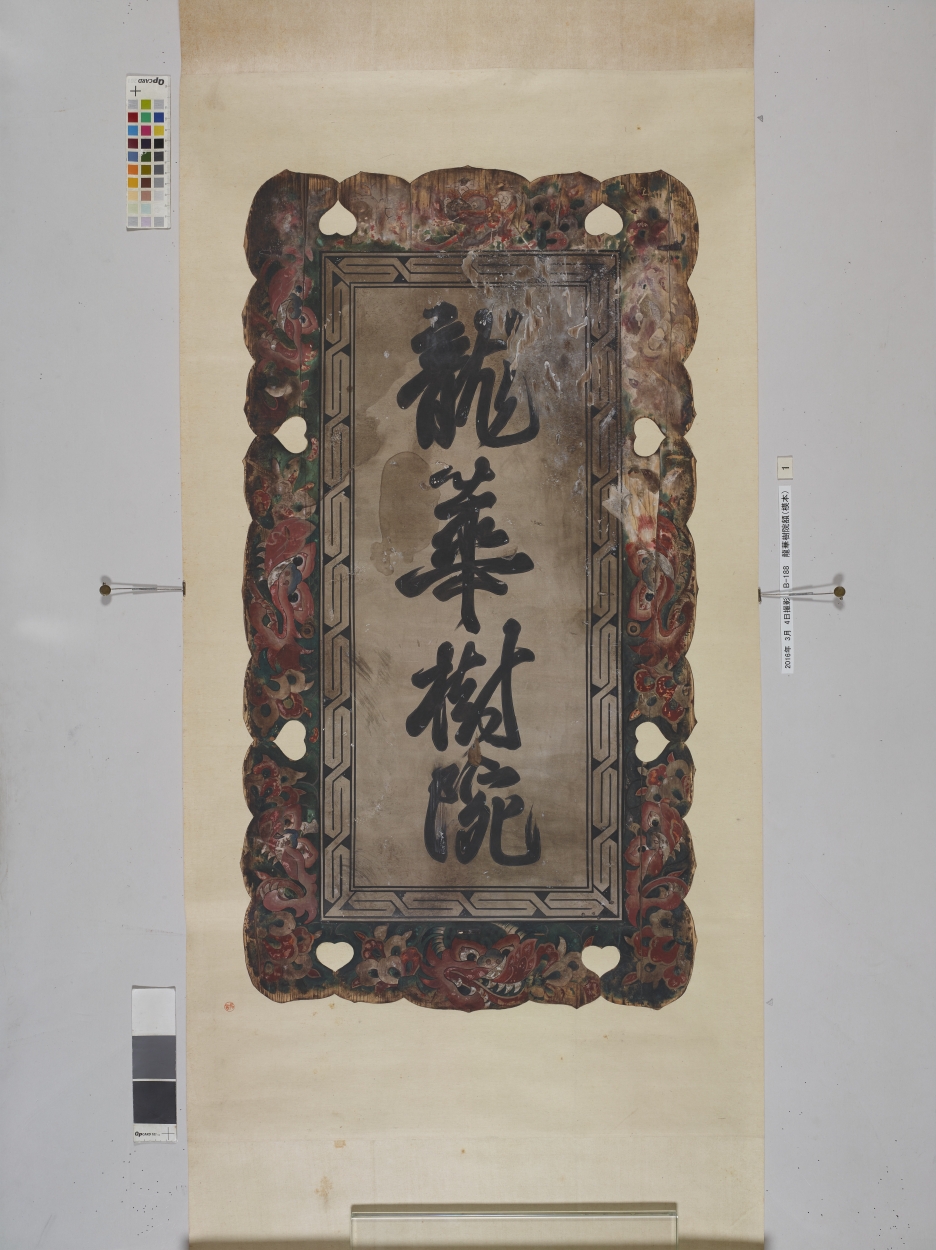 龍華樹院
2016年 3月 4日撮影 B-188 龍華樹院額(模本)
1
QPCARD